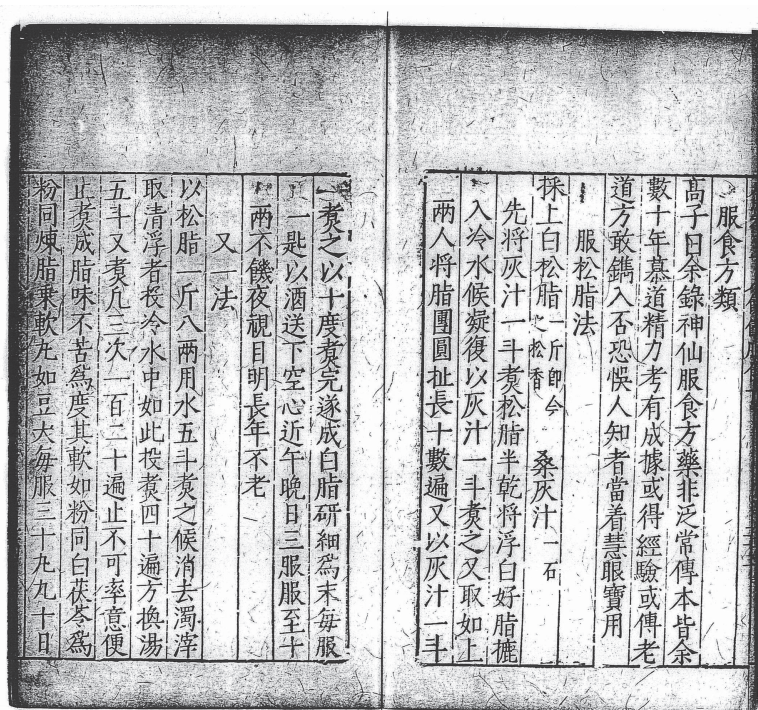 服食方類
高子曰余錄神仙服食方藥非泛常傳本皆余
數十年慕道精力考有成據或得經驗或傳老
道方敢鐫入否恐悞人知者當着慧眼寶用
服松脂法
採上白松脂一斤卽今之松香 桑灰汁一石
先將灰汁一斗煑松脂半乾將浮白好脂摝
入冷水候凝復以灰汁一斗煑之又取如上
兩人將脂團圓扯長十數遍又以灰汁一斗
煑之以十度煑完遂成白脂研細爲末每服
一匙以酒送下空心近午晚日三服服至十
兩不饑夜視目明長年不老
又一法
以松脂一斤八兩用水五斗煑之候消去濁滓
取清浮者投冷水中如此投煑四十遍方換湯
五斗又煑凡三次一百二十遍止不可率意便
止煑成脂味不苦爲度其軟如粉同白茯苓爲
粉同煉脂乘軟丸如豆大每服三十丸九十日